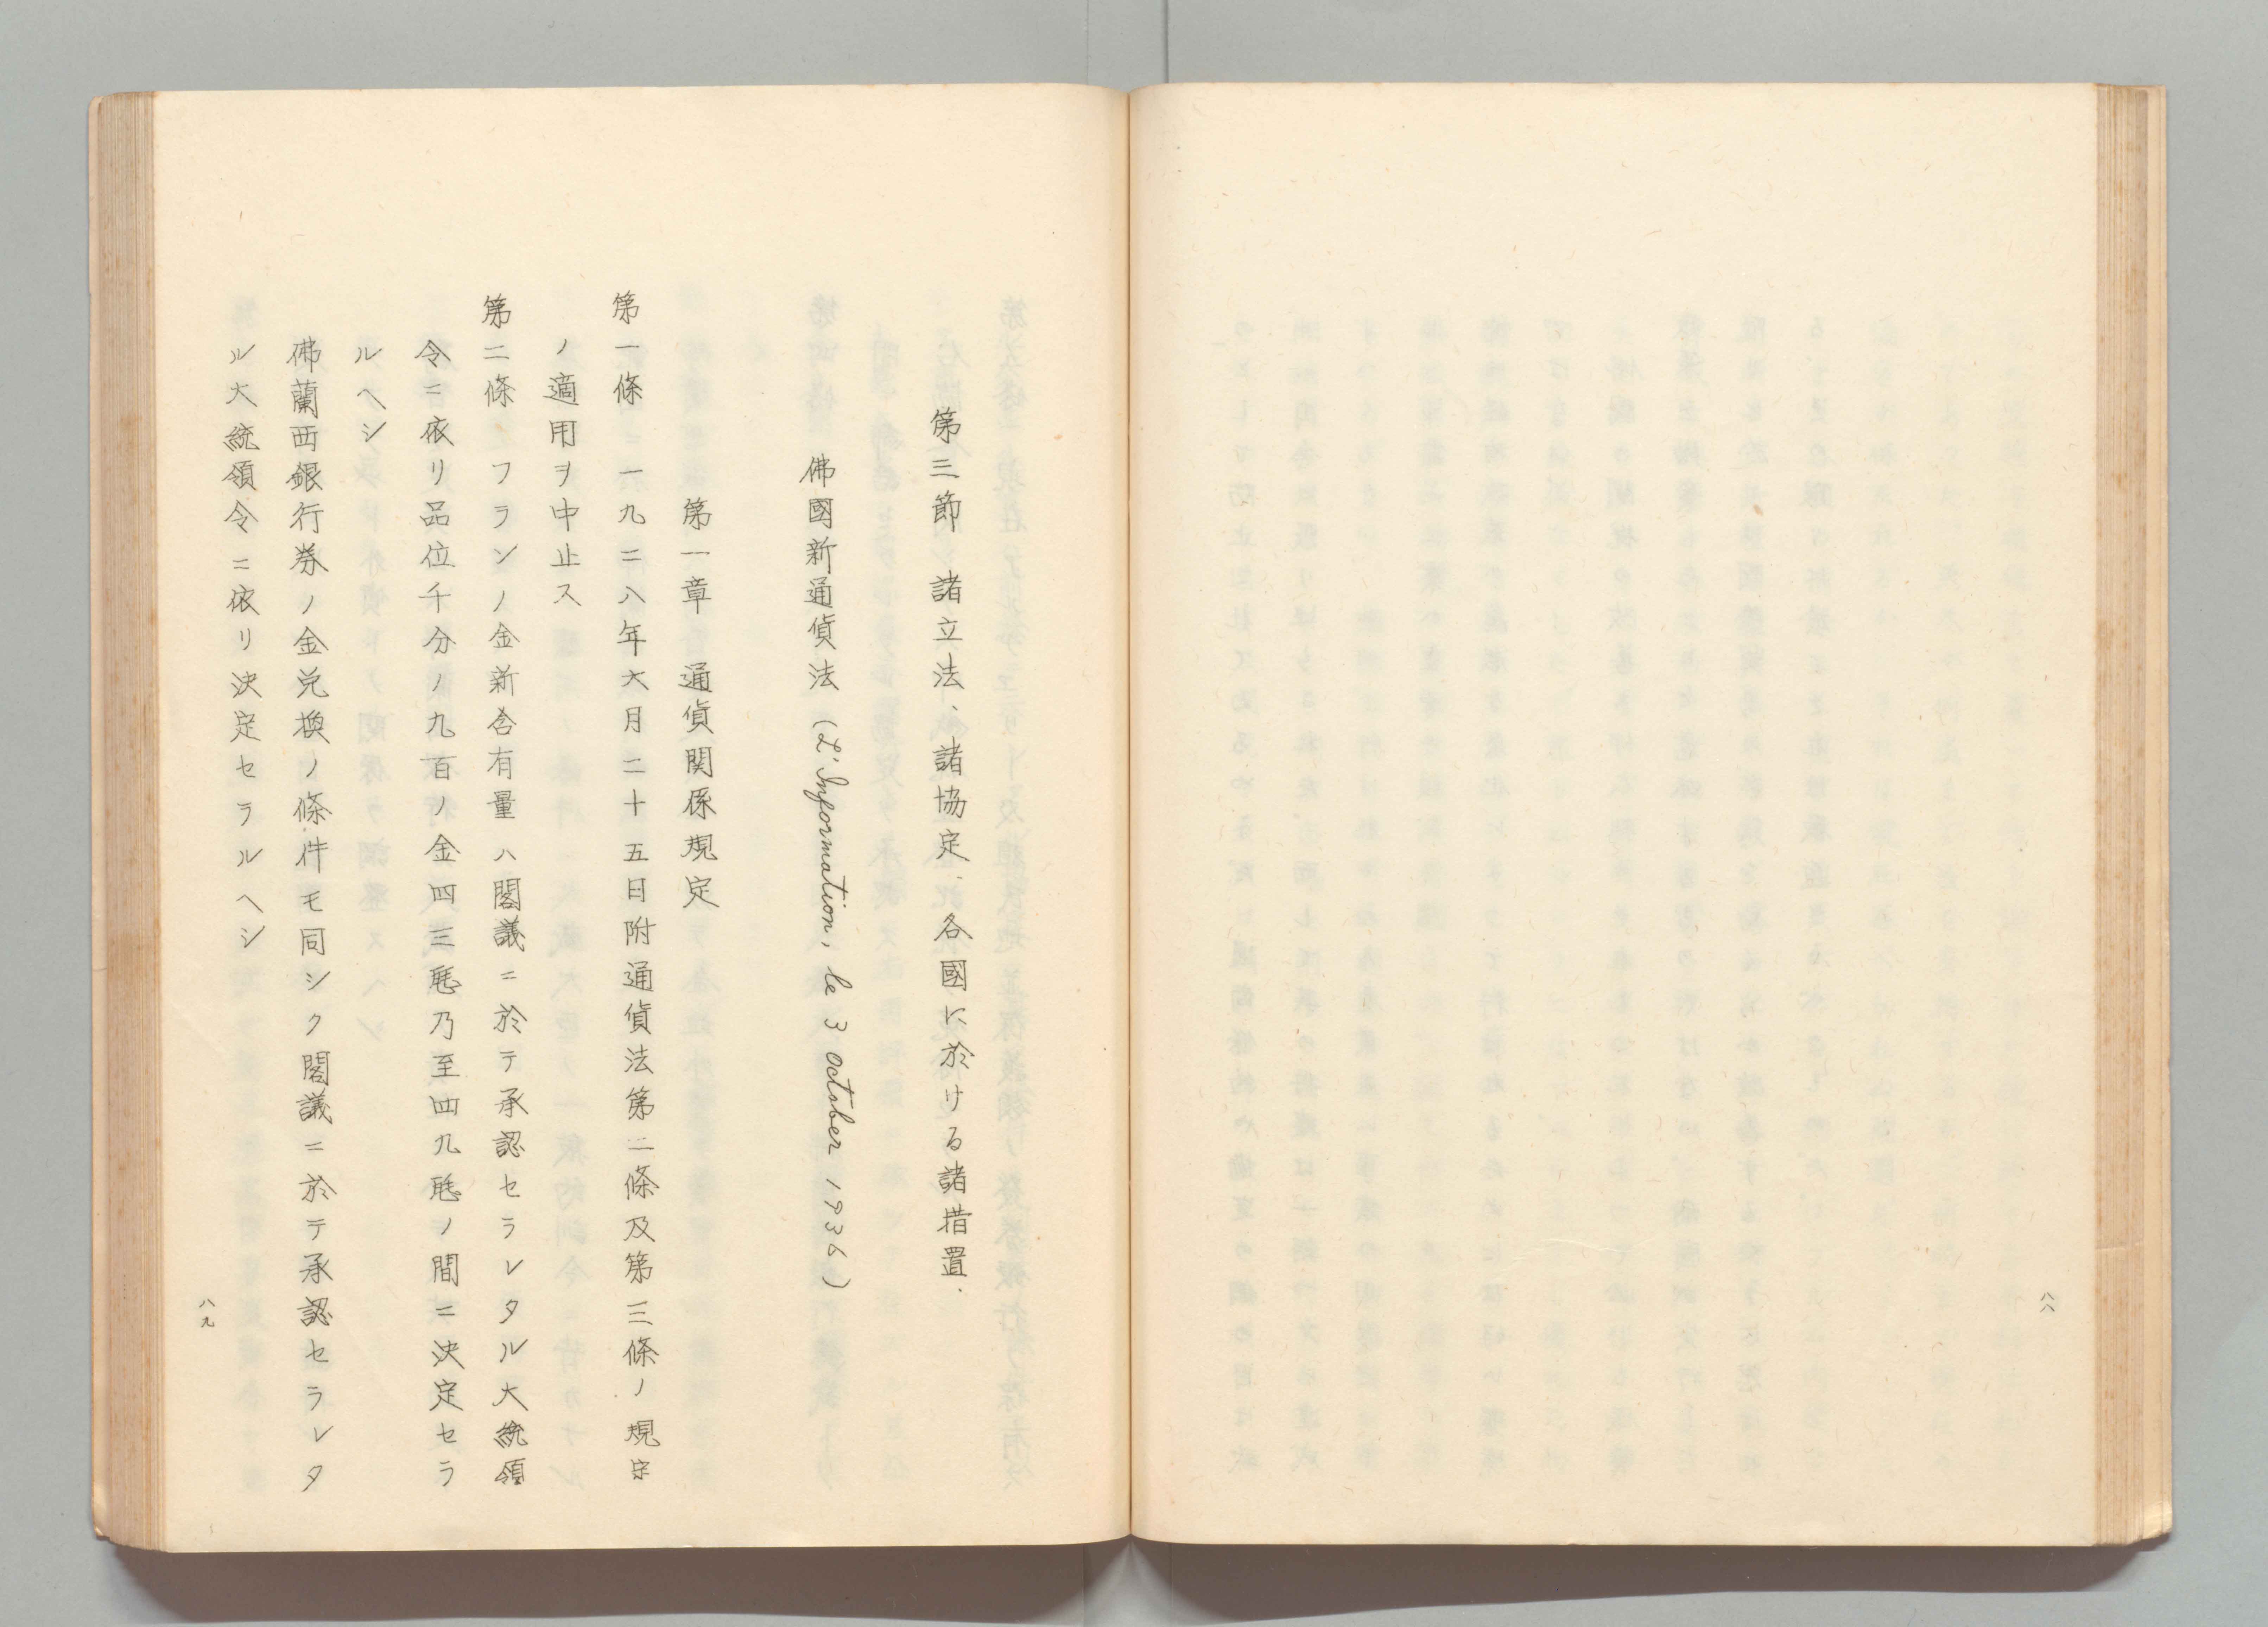 八八
第三節　諸立法、諸協定、各國に於ける諸措置.
佛國新通貨法 (L'Information, le 3 October 1936)
第一章　通貨関係規定
第一條　一九二八年六月二十五日附通貨法第二條及第三條ノ規定
ノ適用ヲ中止ス
第二條　フランノ金新含有量ハ閣議ニ於テ承認セラレタル大統領
令ニ依リ品位千分ノ九百ノ金四三瓱乃至四九瓱ノ間ニ決定セラ
ルヘシ
佛蘭西銀行券ノ金兌換ノ條件モ同シク閣議ニ於テ承認セラレタ
ル大統領令ニ依リ決定セラルヘシ
八九